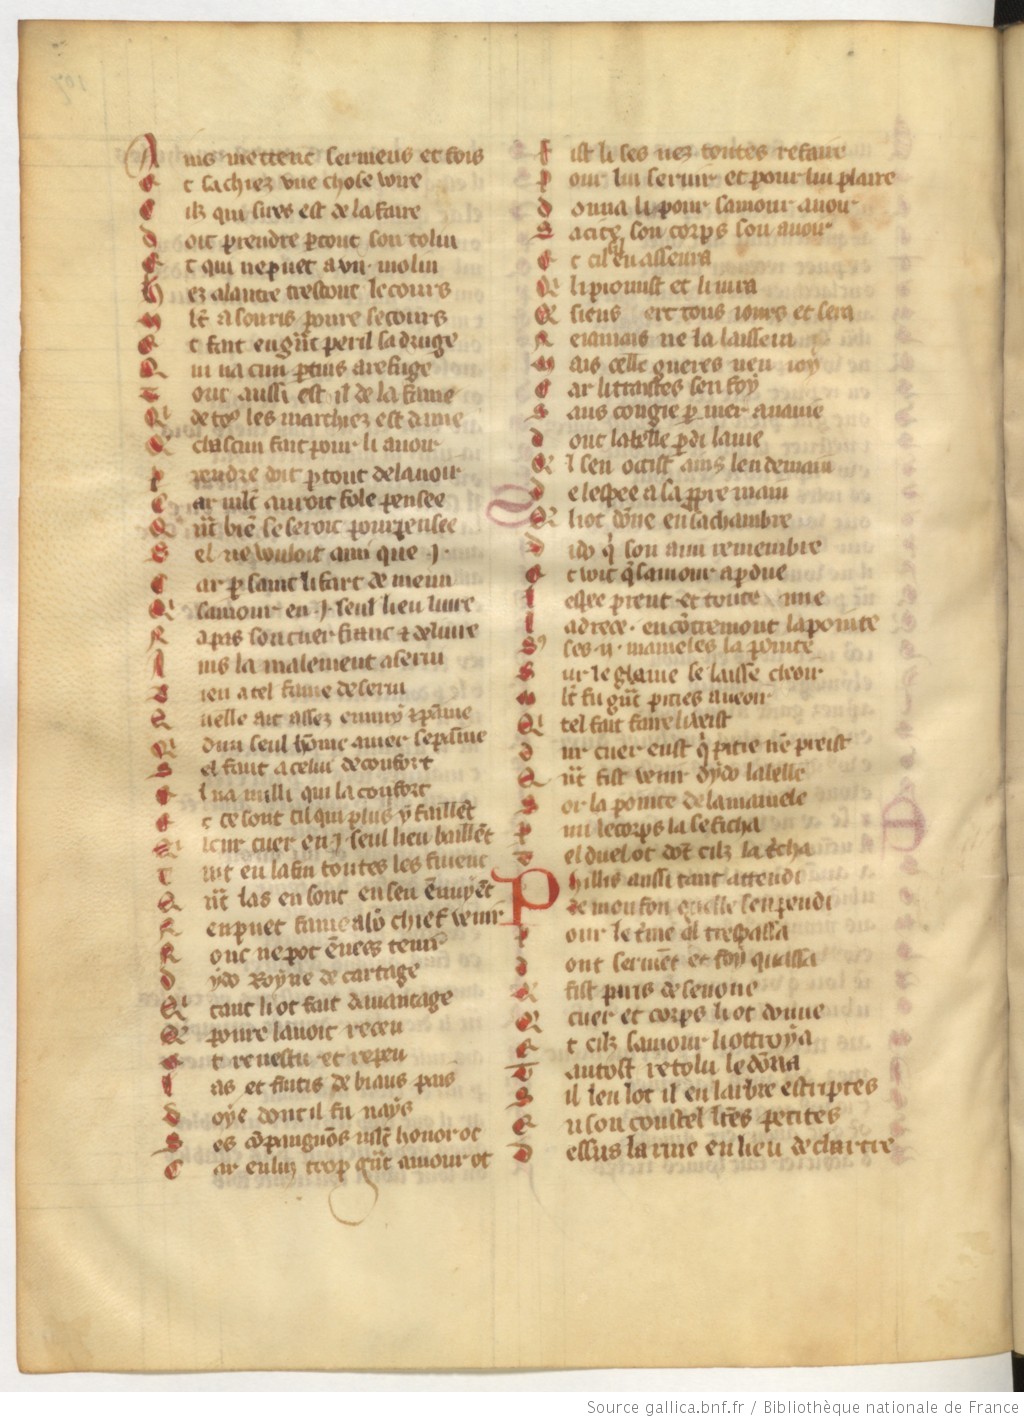 Ains mettent sermens et fois
Et sachiez une chose voire
Cilz qui sires est de la faire
Doit prendre ptout son tolin
Et qui ne puet a un molin
Hez a lautre trestout le cours
Mlt a souris poure secours
Et fait en gnt peril sa druge
Qui na cun ptuis a refuge
Tout aussi est il de la fame
Qui de to9 les marchiez est dame
Que chascun fait pour li avoir
Prendre doit ptout de lavoir
Car mlt auroit fole pensee
Qnt bien se seroit pourpensee
Sel ne vouloit ami que .j.
Car p saint lifart de meun
Qui samour en .j. seul lieu livre
Na pas son cuer franc et delivre
Ains la malement asservi
Bien a tel fame deservi
Quelle ait assez enuuy et paine
Qui dun seul home amer se paine
Sel faut a celui de confort
El na nulli qui la confort
Et ce sont cil qui plus y faillent
Qui leur cuer en .j. seul lieu baillent
Tuit en la fin toutes les fuient
Qnt las en sont et sen ennuyent
Nen puet fame a bo chief venir
Onc ne pot eneas tenir
Dydo Royne de cartage
Qui tant li ot fait davantage
Que poure lavoit receu
Et revestu et repeu
Las et fuitis de biaus pais
Doye dont il fu nays
Ses copaignos mlt honorot
Car en luy trop gnt amour ot
Fist li ses nez toutes refaire
Pour lui servir et pour lui plaire
Donna li pour samour avoir
Sa cite son corps son avoir
Et cil si len asseura
Quil li promist et li iura
Que siens ert tous iours et sera
Ne iamais ne la laissera
Mais celle gueres nen ioy
Car li traistes sen foy
Sans congie p mer a navie
Dont la belle pdi la vie
Quel sen occist ains lendemain
De lespee a sa ppre main
Quil li ot done en sa chambre
Dido q son ami remembre
Et voit q samour a pdue
Lespee prent et toute nue
La drece encontremont la pointe
Soubz ses .ij. mameles la pointe
Sur le glaive se laisse cheoir
Mlt fu gnt pities a veoir
Qui tel fait faire li veist
Dur cuer eust q pitie nen preist
Qnt fist venir dydo la belle
Sor la pointe de la mamele
Pmi le corps la se ficha
Tel duel ot dot cilz la tcha
Phillis aussi tant attendi
Demoufon quelle sen pendi
Pour le tme ql trespassa
Dont serment et foy quassa
Que fist paris de senone
Qui cuer et corps li ot donne
Et cilz samour li ottroya
Tantost retolu le dona
Sil len lot il en larbre escriptes
A son coustel ltres petites
Dessus la rive en lieu de chartre